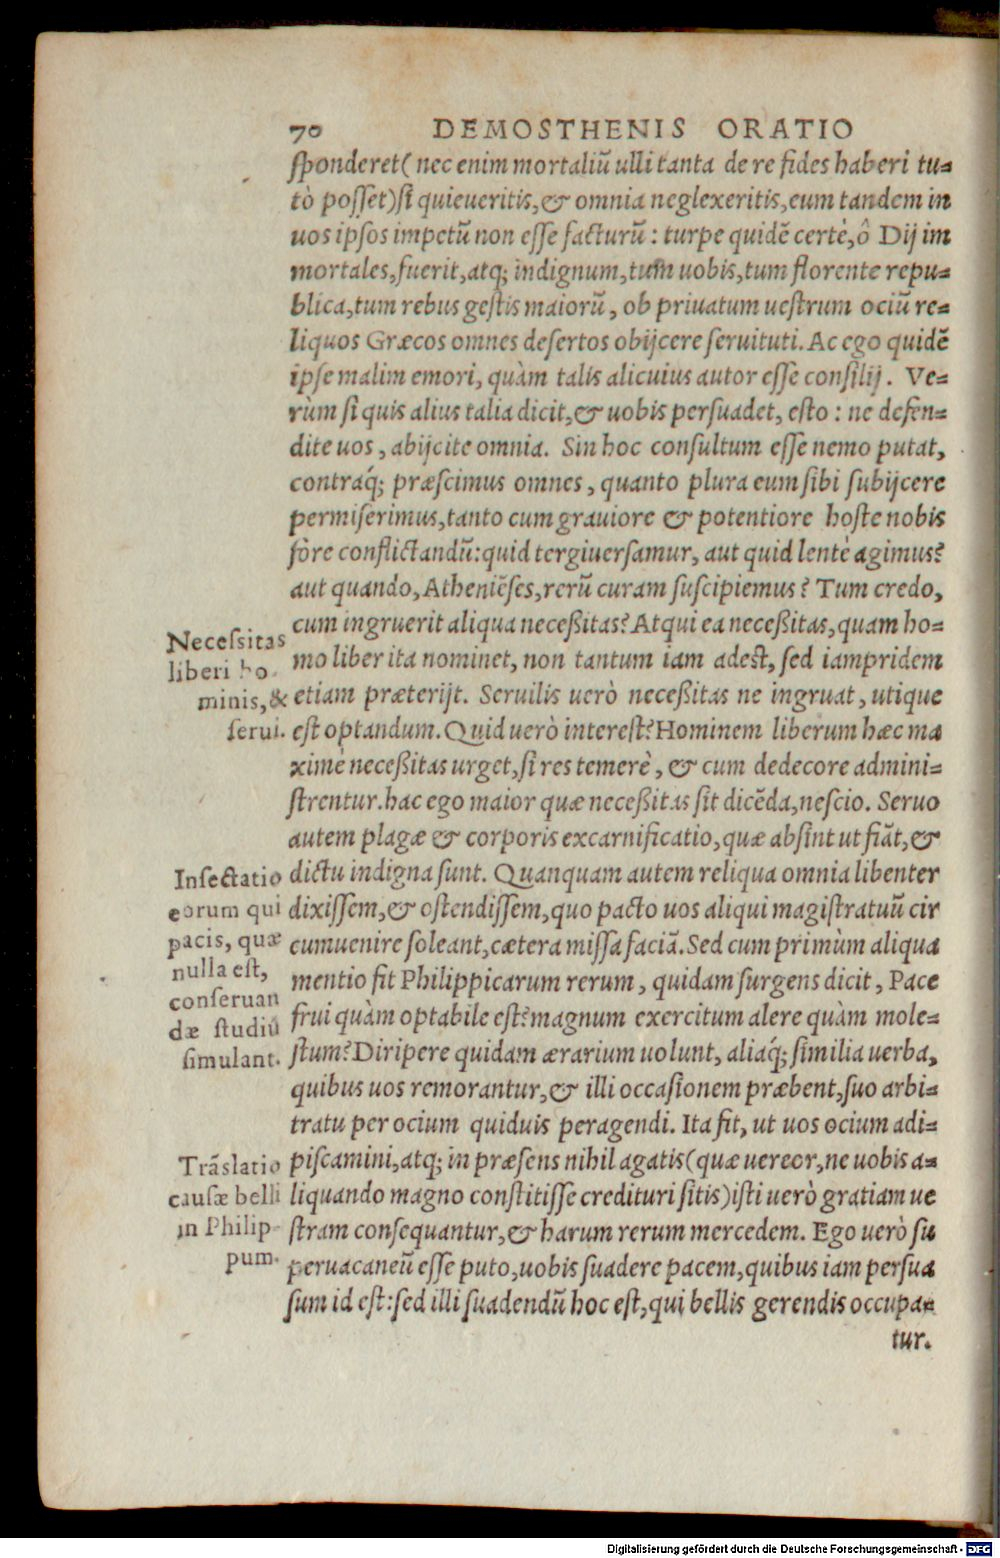 70 DEMOSTHENIS ORATIO
sponderet( nec enim mortaliũ ulli tanta de re fides haberi tu-
tò posset) si quieueritis, & omnia neglexeritis, eum tandem in
uos ipsos impetũ non esse facturũ : turpe quidẽ certè, ô Dij im
mortales, fuerit, atq; indignum, tum uobis, tum florente repu-
blica, tum rebus gestis maiorũ, ob priuatum uestrum ociũ re-
liquos Græcos omnes desertos obijcere seruituti. Ac ego quidẽ
ipse malim emori, quàm talis alicuius autor esse consilij. Ve-
rùm si quis alius talia dicit, & uobis persuadet, esto : ne defen-
dite uos, abijcite omnia. Sin hoc consultum esse nemo putat,
contraq́; præscimus omnes, quanto plura eum sibi subijcere
permiserimus, tanto cum grauiore & potentiore hoste nobis
fòre conflictandũ: quid tergiuersamur, aut quid lentè agimus?
aut quando, Atheniẽses, rerũ curam suscipiemus? Tum credo,
cum ingruerit aliqua neceßitas? Atqui ea neceßitas, quam ho-
mo liber ita nominet, non tantum iam adest, sed iampridem
etiam præterijt. Seruilis uerò neceßitas ne ingruat, utique
est optandum. Quid uerò interest? Hominem liberum hæc ma
ximè neceßitas urget, si res temerè, & cum dedecore admini-
strentur. hac ego maior quæ neceßitas sit dicẽda, nescio. Seruo
autem plagæ & corporis excarnificatio, quæ absint ut fiãt, &
dictu indigna sunt. Quanquam autem reliqua omnia libenter
dixissem, & ostendissem, quo pacto uos aliqui magistratuũ cir
cumuenire soleant, cætera missa faciã. Sed cum primùm aliqua
mentio fit Philippicarum rerum, quidam surgens dicit, Pace
frui quàm optabile est? magnum exercitum alere quàm mole-
stum? Diripere quidam ærarium uolunt, aliaq́; similia uerba,
quibus uos remorantur, & illi occasionem præbent, suo arbi-
tratu per ocium quiduis peragendi. Ita fit, ut uos ocium adi-
piscamini, atq; in præsens nihil agatis( quæ uereor, ne uobis a-
liquando magno constitisse credituri sitis) isti uerò gratiam ue
stram consequantur, & harum rerum mercedem. Ego uerò su
peruacaneũ esse puto, uobis suadere pacem, quibus iam persua
sum id est: sed illi suadendũ hoc est, qui bellis gerendis occupa-
tur.
Necessitas
liberi ho-
minis, &
serui.
Insectatio
eorum qui
pacis, quæ
nulla est,
conseruan
dæ studiũ
simulant.
Trãslatio
causæ belli
in Philip-
pum.
Digitalisierung gefördert durch die Deutsche Forschungsgemeinschaft - DFG